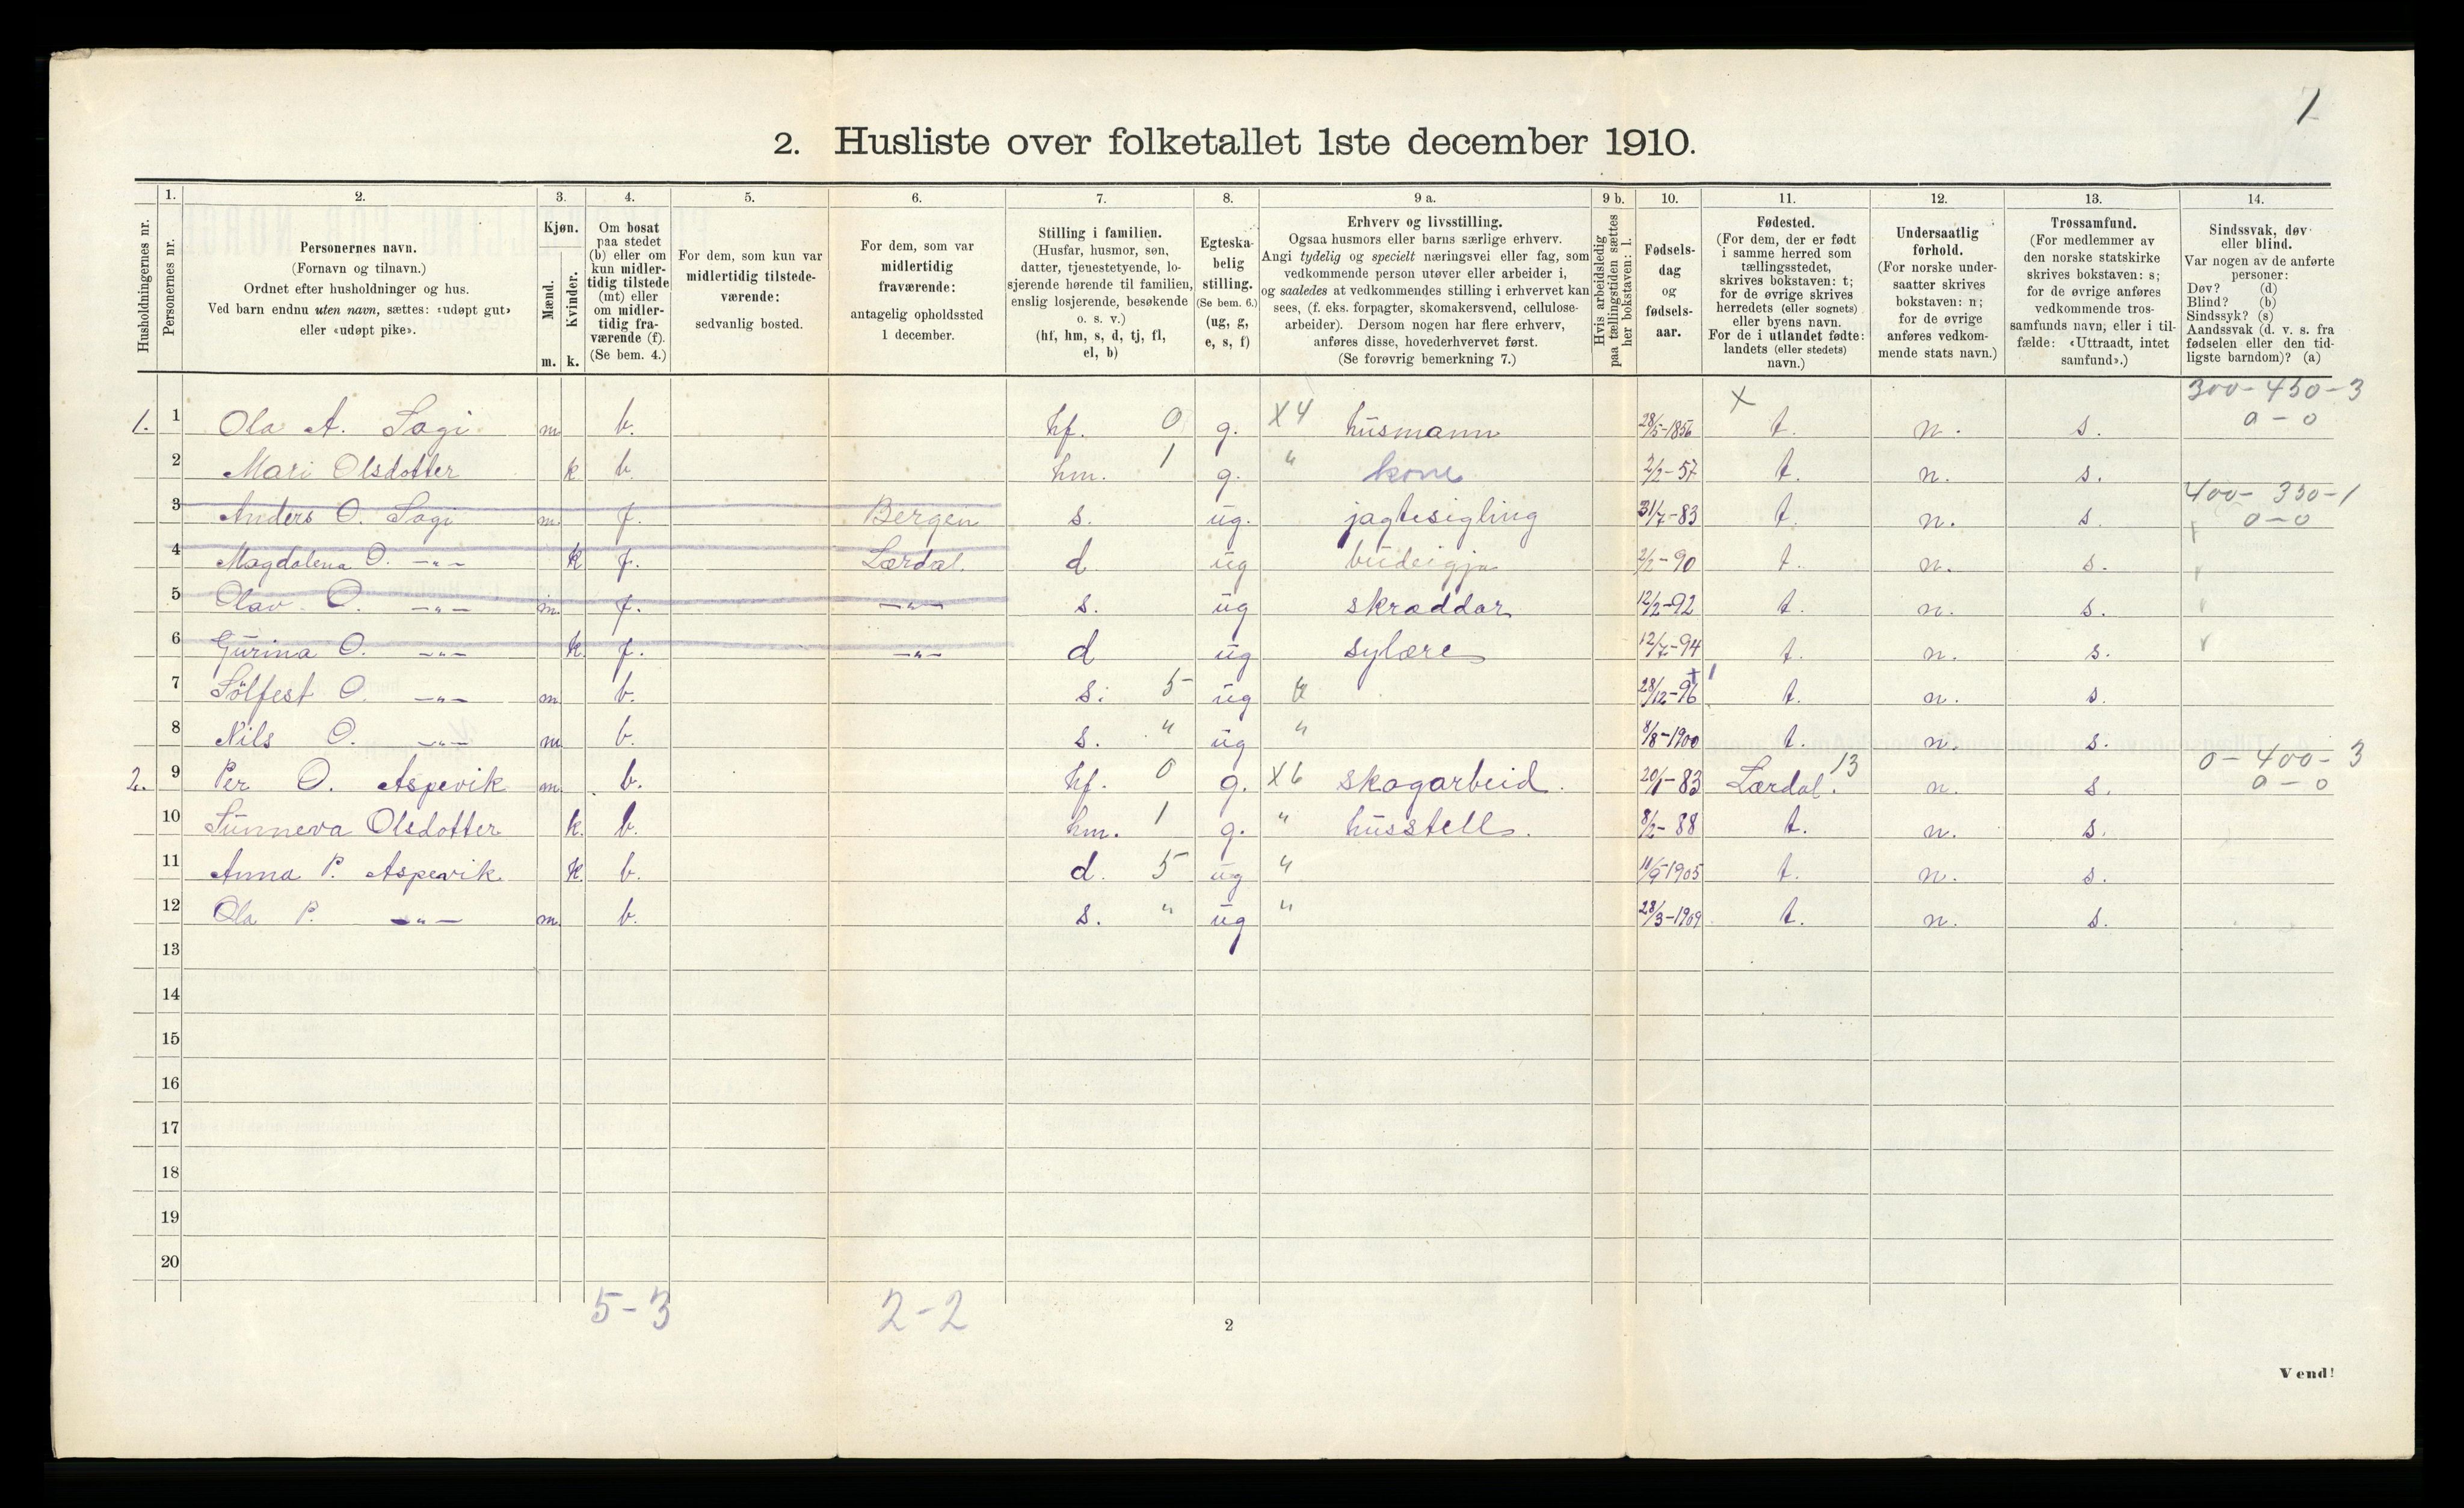 1
2. Husliste over folketallet 1ste december 1910.
Husholdningernes nr.
1. Personernes nr.
2. Personernes navn.
(Fornavn og tilnavn.)
Ordnet efter husholdninger og hus.
Ved barn endnu uten navn, sættes: «udøpt gut»
eller «udøpt pike».
3. Kjøn.
Mænd. m.
Kvinder. k.
4. Om bosat
paa stedet
(b) eller om
kun midler-
tidig tilstede
(mt) eller
om midler-
tidig fra-
værende (f).
(Se bem. 4.)
5. For dem, som kun var
midlertidig tilstede-
værende:
sedvanlig bosted.
6. For dem, som var
midlertidig
fraværende:
antagelig opholdssted
1 december.
7. Stilling i familien.
(Husfar, husmor, søn,
datter, tjenestetyende, lo-
sjerende hørende til familien,
enslig losjerende, besøkende
o. s. v.)
(hf, hm, s, d, tj, fl,
el, b)
8. Egteska-
belig
stilling.
(Se bem. 6.)
(ug, g,
e, s, f)
9 a. Erhverv og livsstilling.
Ogsaa husmors eller barns særlige erhverv.
Angi tydelig og specielt næringsvei eller fag, som
vedkommende person utøver eller arbeider i,
og saaledes at vedkommendes stilling i erhvervet kan
sees, (f. eks. forpagter, skomakersvend, cellulose-
arbeider). Dersom nogen har flere erhverv,
anføres disse, hovederhvervet først.
(Se forøvrig bemerkning 7.)
9 b. Hvis arbeidsledig
paa tællingstiden sættes
her bokstaven: l.
10. Fødsels-
dag
og
fødsels-
aar.
11. Fødested.
(For dem, der er født
i samme herred som
tællingsstedet,
skrives bokstaven: t;
for de øvrige skrives
herredets (eller sognets)
eller byens navn.
For de i utlandet fødte:
landets (eller stedets)
navn.)
12. Undersaatlig
forhold.
(For norske under-
saatter skrives
bokstaven: n;
for de øvrige
anføres vedkom-
mende stats navn.)
13. Trossamfund.
(For medlemmer av
den norske statskirke
skrives bokstaven: s;
for de øvrige anføres
vedkommende tros-
samfunds navn, eller i til-
fælde: «Uttraadt, intet
samfund».)
14. Sindssvak, døv
eller blind.
Var nogen av de anførte
personer:
Døv? (d)
Blind? (b)
Sindssyk? (s)
Aandssvak (d. v. s. fra
fødselen eller den tid-
ligste barndom)? (a)
300 - 450 - 3
1. 1 Ola A. Sagi m. b. hf. 0 g. X4 husmann 28/5-1856 X t. n. s. 0 - 0
2 Mari Olsdotter k b. hm. 1 g. " kone 2/2-57 t. n. s.
400 - 350 - 1
3 Anders O. Sagi m. f. Bergen s. ug. jagtesigling 31/7-83 t. n. s. 0 - 0
4 Magdalena O. -"- k f. Lærdal. d ug budeigja 2/2-90 t. n. s.
5 Olav O. -"- m. f. -"- s. ug skræddar 12/2-92 t. n. s.
6 Gurina O. -"- k. f. -"- d ug sylære 12/7-94 t. n. s.
7 Sölfest O. -"- m b. s. 5 ug 28/12-96 t. n. s.
8 Nils O. -"- m b. s. " ug " 8/8-1900 t. n. s.
0 - 400 - 3
2. 9 Per O. Aspevik m. b. hf. 0 g. X6 skogarbeid. 20/1-83 Lærdal. 13 n. s. 0 - 0
10 Sunneva Olsdotter k. b. hm. 1 g. " husstell. 8/2-88 t. n. s.
11 Anna P. Aspevik. k. b. d. 5 ug " 11/9-1905 t. n. s.
12 Ola P. -"- m. b. s. " ug " 28/3-1909 t. n. s.
13
14
15
16
17
18
19
20
5-3 2-2
2
Vend!